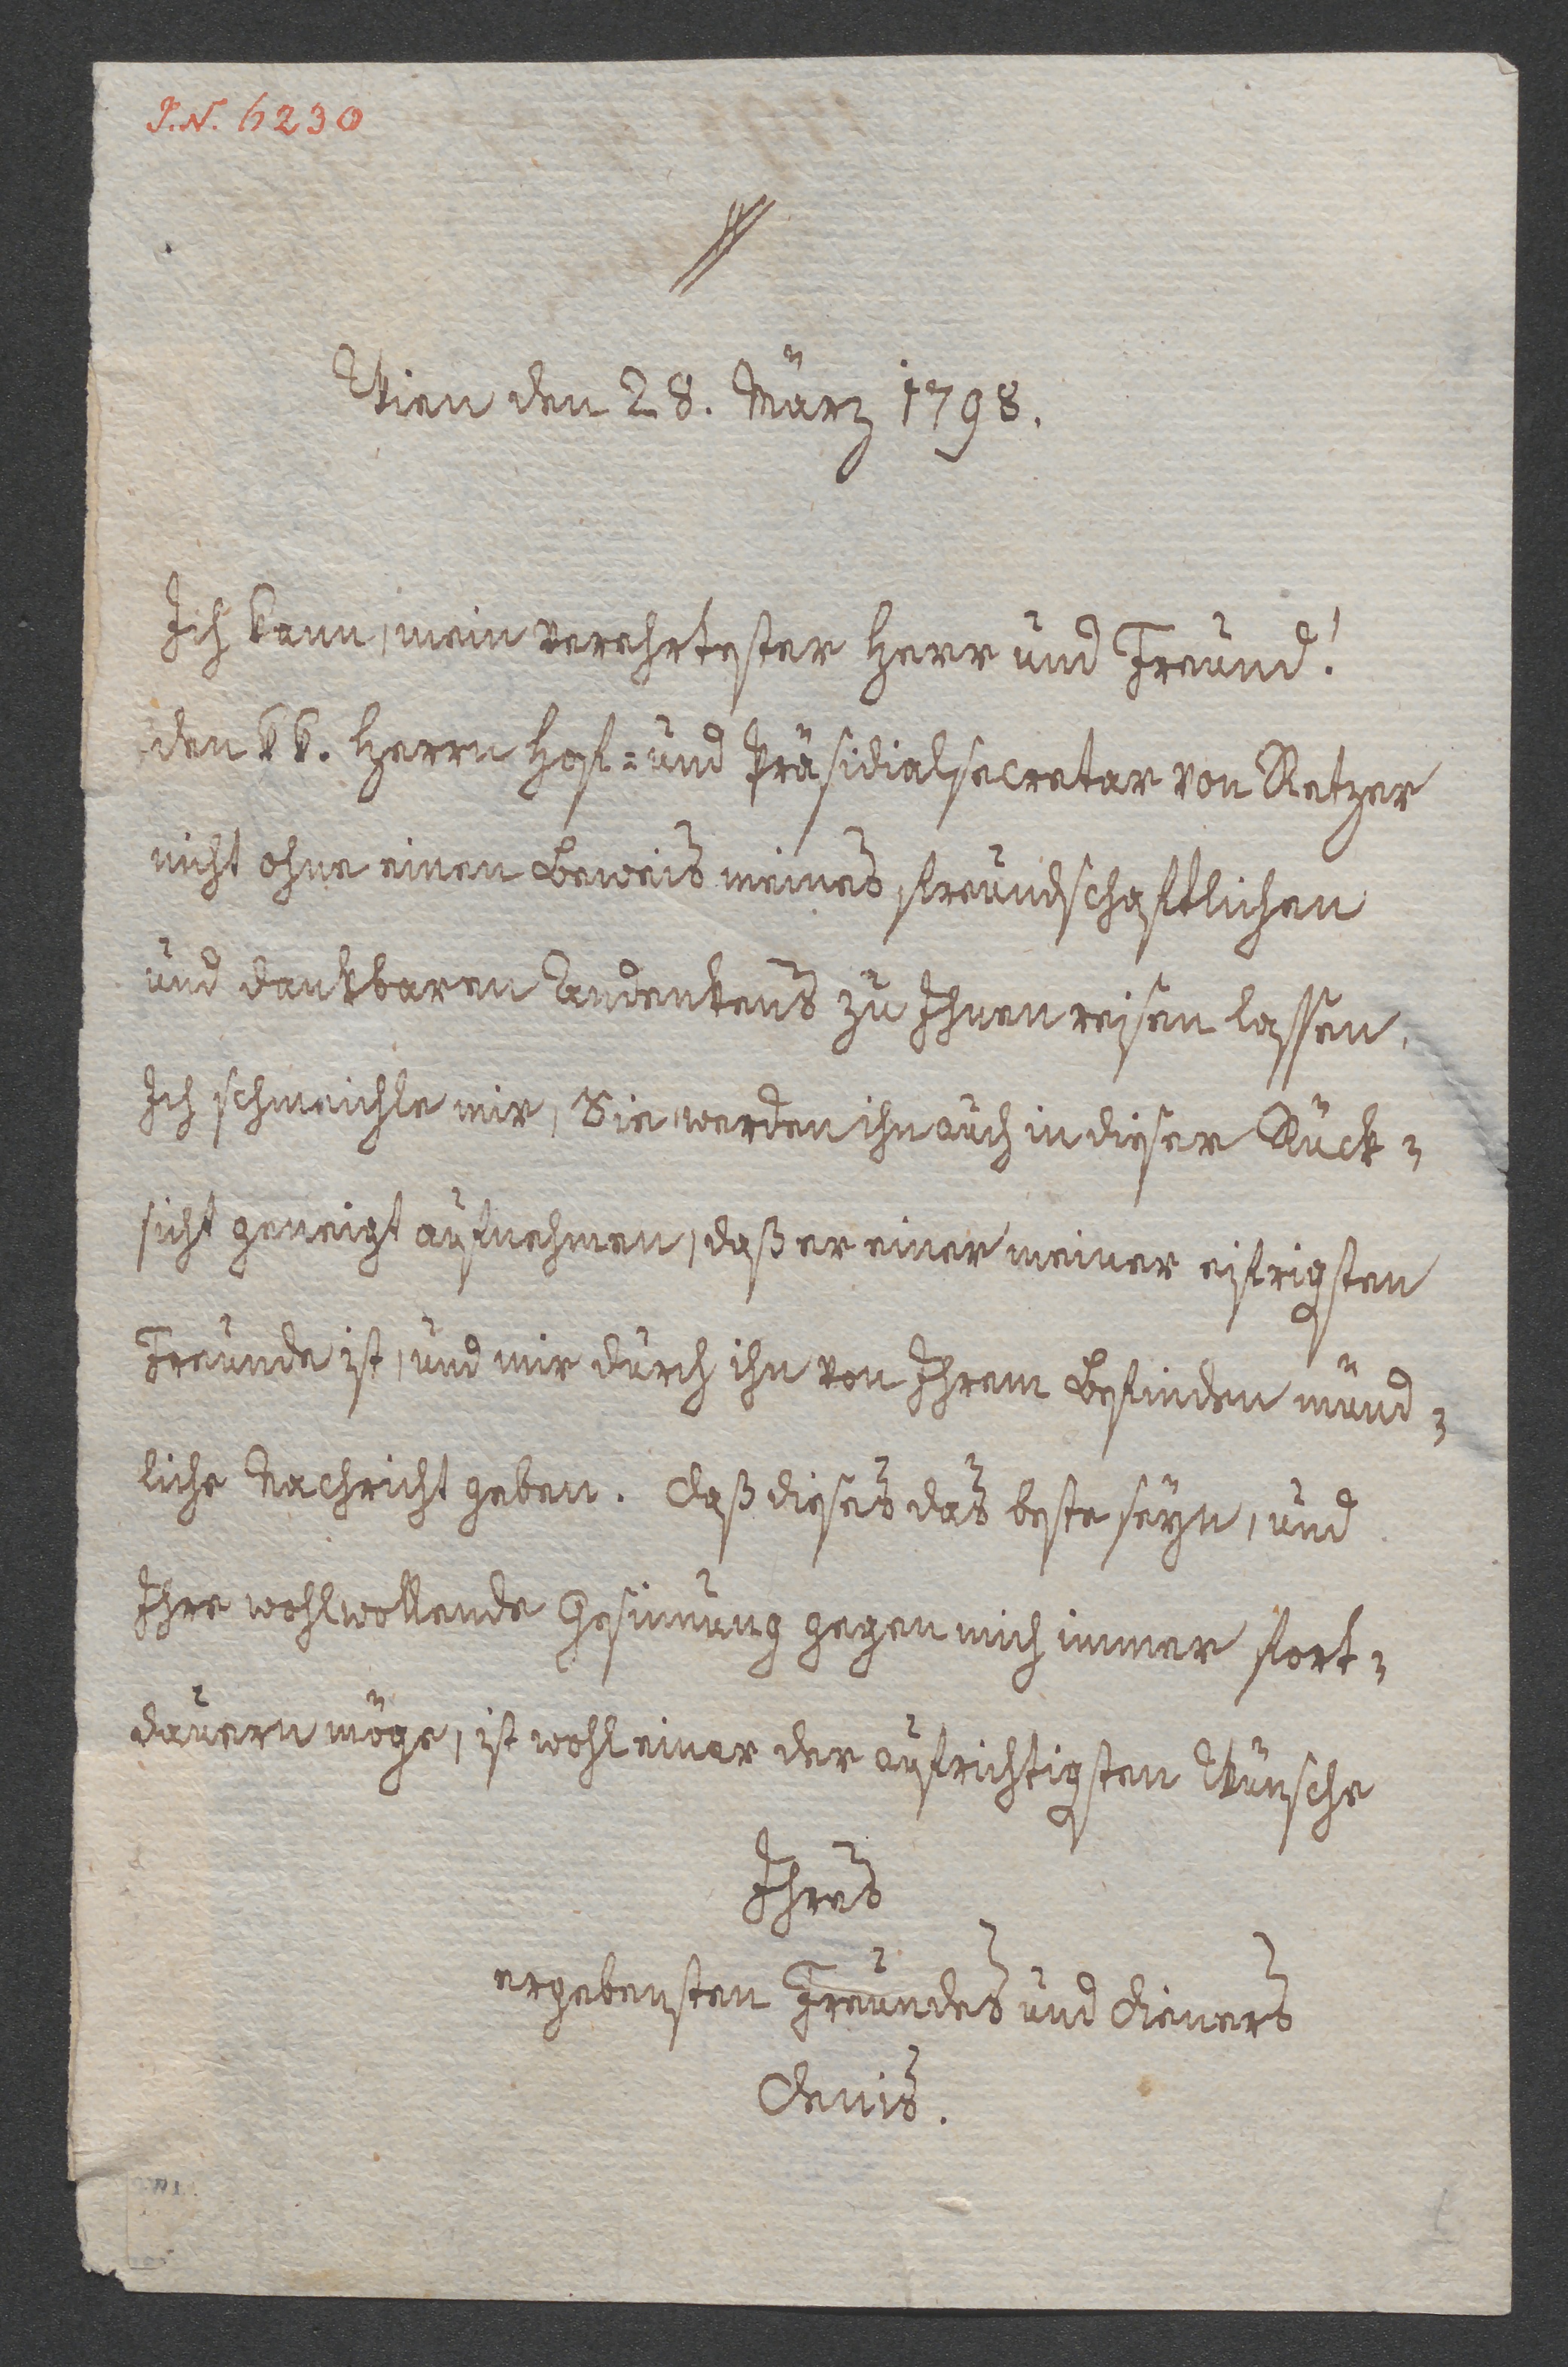 I.N. 6230
Wien den 28. März 1798.
Ich kann, mein verehrtester Herr und Freund!
den kk. Herrn Hof= und Präsidialsecretar von Retzer
nicht ohne einen Beweis meines freundschaftlichen
und dankbaren Andenkens zu Ihnen reisen lassen.
Ich schmeichle mir, Sie werden ihn auch in dieser Rück=
sicht geneigt aufnehmen, daß er einer meiner eifrigsten
Freunde ist, und mir durch ihn von Ihrem Befinden münd=
liche Nachricht geben. Daß dieses das beste seyn, und
Ihre wohlwollende Gesinnung gegen mich immer fort=
dauern möge, ist wohl einer der aufrichtigsten Wünsche
Ihres
ergebensten Freundes und Dieners
Denis.